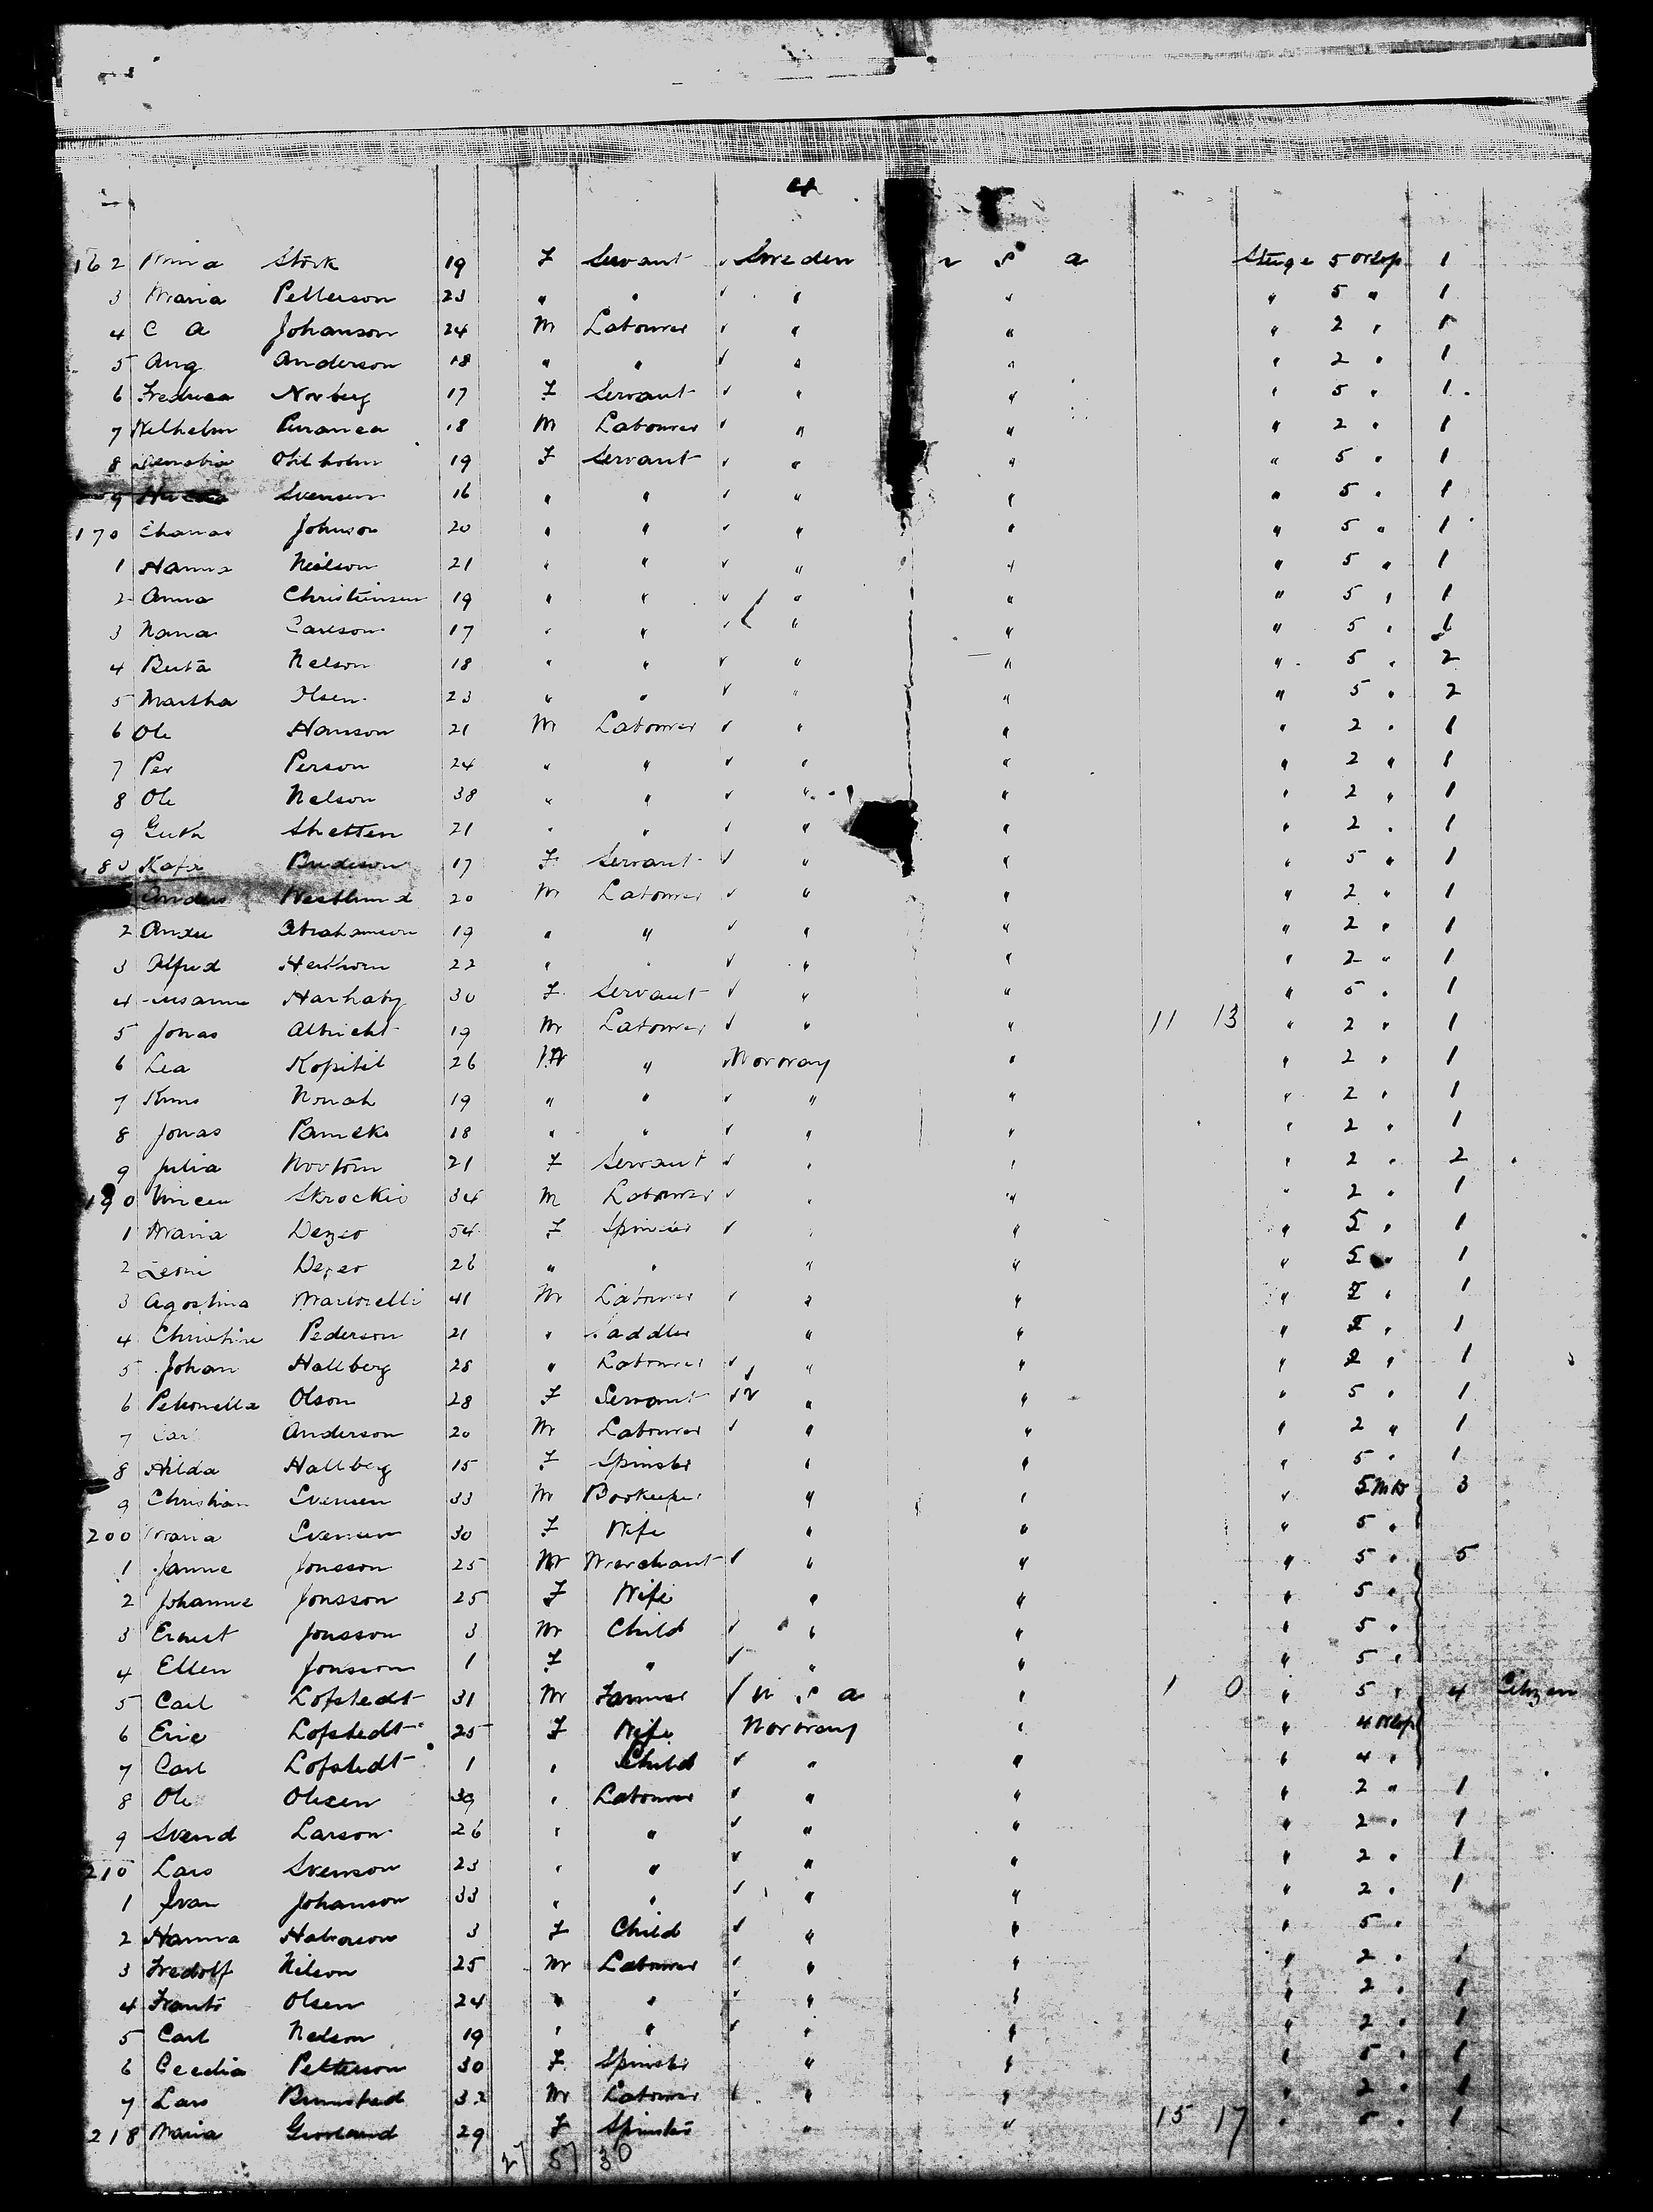 4
162 Stork 19 F Servant Sweden U S A Steerge 5 Orlop 1
3 Maria Petterson 23 " " " " " 5 " 1
4 C A Johanson 24 M Labourer " " " 2 " 1
5 Aug Anderson 18 " " " " " 2 " 1
6 Norberg 17 F Servant " " " 5 " 1
7 Wilhelm 18 M Labourer " " " 2 " 1
8 19 F Servant " " " 5 " 1
9 Svensen 16 " " " " " 5 " 1
170 Johnson 20 " " " " " 5 " 1
1 Hanna Neilson 21 " " " " " 5 " 1
2 Anna Christiensen 19 " " " " " 5 " 1
3 Nana Carlson 17 " " " " " 5 " 1
4 Berta Nelson 18 " " " " " 5 " 2
5 Martha Olsen 23 " " " " " 5 " 2
6 Ole Hanson 21 M Labourer " " " 2 " 1
7 Per Person 24 " " " " " 2 " 1
8 Ole Nelson 38 " " " " " 2 " 1
9 Shetten 21 " " " " " 2 " 1
180 17 F Servant " " " 5 " 1
Westlund 20 M Labourer " " " 2 " 1
2 Abrahamson 19 " " " " " 2 " 1
3 Alfred 22 " " " " " 2 " 1
4 30 F Servant " " " 5 " 1
5 Jonas Albricht 19 M Labourer " " 11 13 " 2 " 1
6 Lea 26 M " Norway " " 2 " 1
7 19 " " " " " 2 " 1
8 Jonas 18 " " " " " 2 " 1
9 Julia 21 F Servant " " " 2 " 2
190 34 M Labourer " " " 2 " 1
1 Maria Dezeo 54 F " " " 5 " 1
2 Dezeo 26 " " " " " 5 " 1
3 Agostina Martorelli 41 M Labourer " " " 2 " 1
4 Christine Pederson 21 " Saddler " " " 2 " 1
5 Johan Hallberg 28 " Labourer " " " 2 " 1
6 Petronella Olson 28 F Servant " " " 5 " 1
7 Carl Anderson 20 M Labourer " " " 2 " 1
8 Hilda Hallberg 15 F Spinster " " " 5 " 1
9 Christian Evensen 33 M Bookeeper " " " 5 3
200 Maria Evensen 30 F Wife " " " 5 "
1 Janne Jonsson 25 M Merchant " " " 5 " 5
2 Johanne Jonsson 25 F Wife " " " 5 "
3 Ernest Jonsson 3 M Child " " " 5 "
4 Ellen Jonsson 1 F " " " " 5 "
5 Carl Lofstedt 31 M Farmer U S A " 1 0 " 5 " 4 Citizen
6 Eric Lofstedt 25 F Wife Norway " " 4 Orlop
7 Carl Lofstedt 1 " Child " " " 4 "
8 Ole Olesen 39 " Labourer " " " 2 " 1
9 Svend Larson 26 " " " " " 2 " 1
210 Lars Svenson 23 " " " " " 2 " 1
1 Ivan Johanson 33 " " " " " 2 " 1
2 Hanna 3 F Child " " " 5 "
3 Fredolf Nilson 25 M Labourer " " " 2 " 1
4 Olsen 24 " " " " " 2 " 1
5 Carl Nelson 19 " " " " " 2 " 1
6 Cecilia Petterson 30 F Spinster " " " 5 " 1
7 Lars 32 M Labourer " " " 2 " 1
218 Maria 29 F Spinster " " 15 17 " 5 " 1
27 57 30